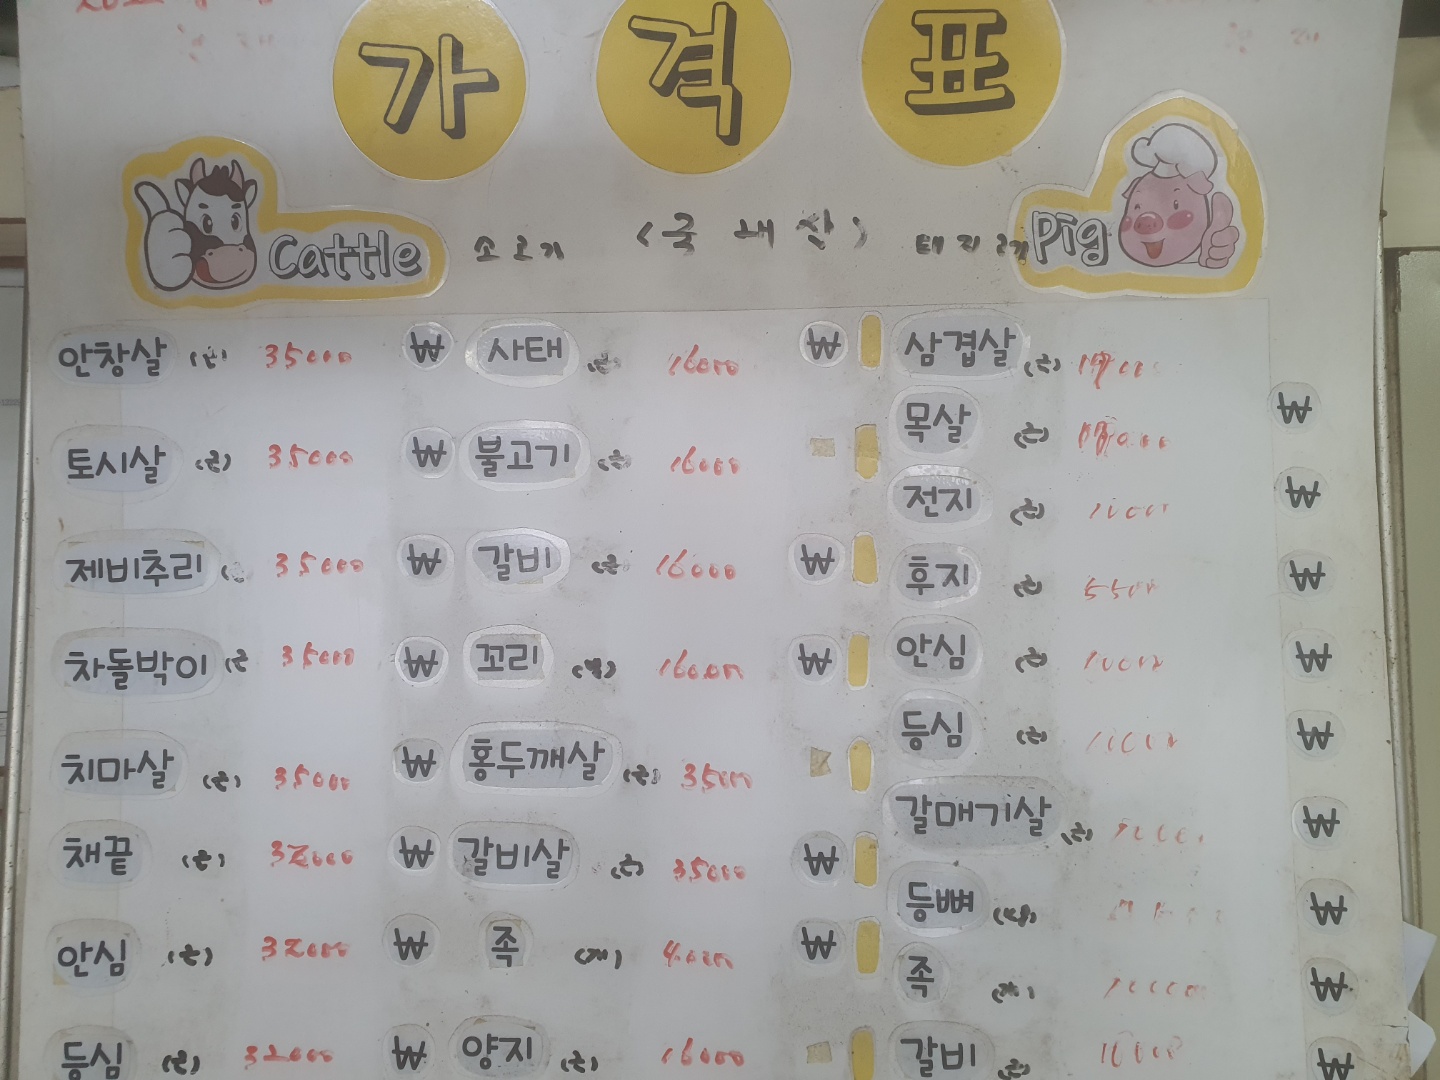 가격표
Cattle 소고기 (국내산) 돼지고기 Pig
안창살 (근) 35000 ₩
토시살 (근) 35000 ₩
제비추리 35000 ₩
차돌박이 (근 35000 ₩
치마살 (근) 35000 ₩
채끝 (근) 32000 ₩
안심 (근) 32000 ₩
등심 (근) 32000 ₩
사태 (근) 16000 ₩
불고기 (근) 16000
갈비 (근) 16000 ₩
꼬리 16000 ₩
홍두깨살 (근) 35000
갈비살 (근) 35000 ₩
족 (개) 4000 ₩
양지 (근) 16000
삼겹살 (근) ₩
목살 (근) ₩
전지 (근) ₩
후지 (근) 5500 ₩
안심 (근) ₩
등심 (근) ₩
갈매기살 (근) ₩
등뼈 ₩
족 (개) ₩
갈비 (근)